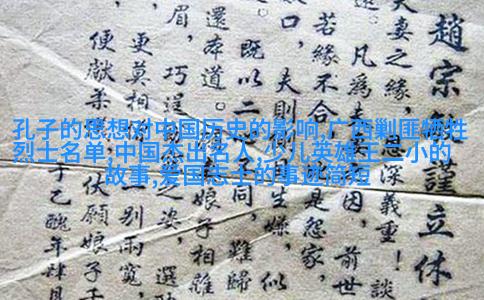 趙宗 謹立休
夫妻之緣， 深義重！談
凡為夫 因，前世
若緣不合 是怨家，
口，夫則 生嫌，似
既以二 不同，難歸
還本道。 娘子相離
眉，巧逞 之姿，選
更莫相 別兩寬，
便獻柔 伏願娘子千
于乙醜年肆月
孔子的思想对中国历史的影响,广西剿匪牺牲
烈士名单,中国杰出名人,少儿英雄王二小的
故事,爱国志士的事迹简短